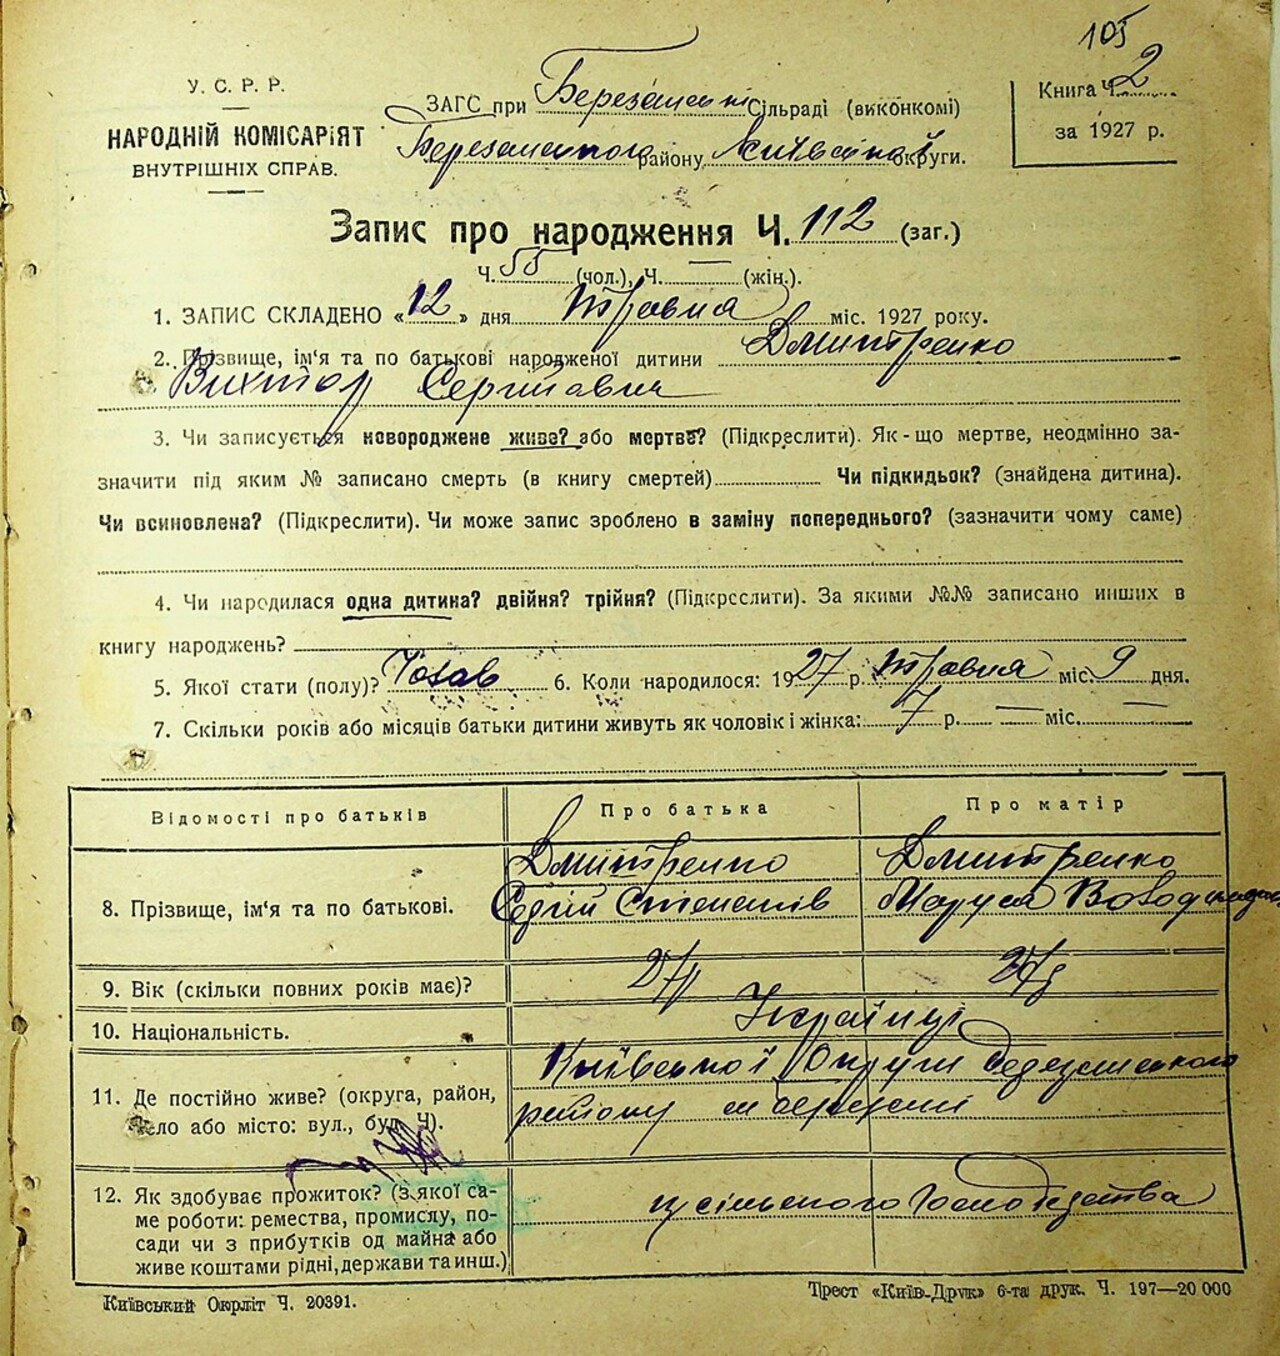 105
У. С. Р. Р.
НАРОДНІЙ КОМІСАРІЯТ
ВНУТРІШНІХ СПРАВ.
ЗАГС при Березанські Сільраді (виконкомі)
Березанського району Київської округи.
Книга Ч. 2
за 1927 р.
Запис про народження Ч. 112 (заг.)
Ч. 55 (чол.), Ч. — (жін.).
1. ЗАПИС СКЛАДЕНО «12» дня Травня міс. 1927 року.
2. Прізвище, ім'я та по батькові народженої дитини Дмитренко
Вихтор Сергійович
3. Чи записується новороджене живе? або мертве? (Підкреслити). Як-що мертве, неодмінно за-
значити під яким № записано смерть (в книгу смертей) Чи підкидьок? (знайдена дитина).
Чи всиновлена? (Підкреслити). Чи може запис зроблено в заміну попереднього? (зазначити чому саме)
4. Чи народилася одна дитина? двійня? трійня? (Підкреслити). За якими №№ записано инших в
книгу народжень?
5. Якої стати (полу)? 6. Коли народилося: 1927 р. Травня міс. 9 дня.
7. Скільки років або місяців батьки дитини живуть як чоловік і жінка: 7 р. — міс. —
Відомості про батьків Про батька Про матір
8. Прізвище, ім'я та по батькові. Дмитренко Сергій Степанів Дмитренко Маруся
9. Вік (скільки повних років має)? 27р 27р
10. Національність. Українці
11. Де постійно живе? (округа, район,
село або місто: вул., буд. Ч). Київської Округи Березанського
району
12. Як здобуває прожиток? (з якої са-
ме роботи: ремества, промислу, по-
сади чи з прибутків од майна або
живе коштами рідні, держави та инш.) із сільського Господарства
Київський Окрліт Ч. 20391.
Трест «Київ-Друк» 6-та друк. Ч. 197—20 000